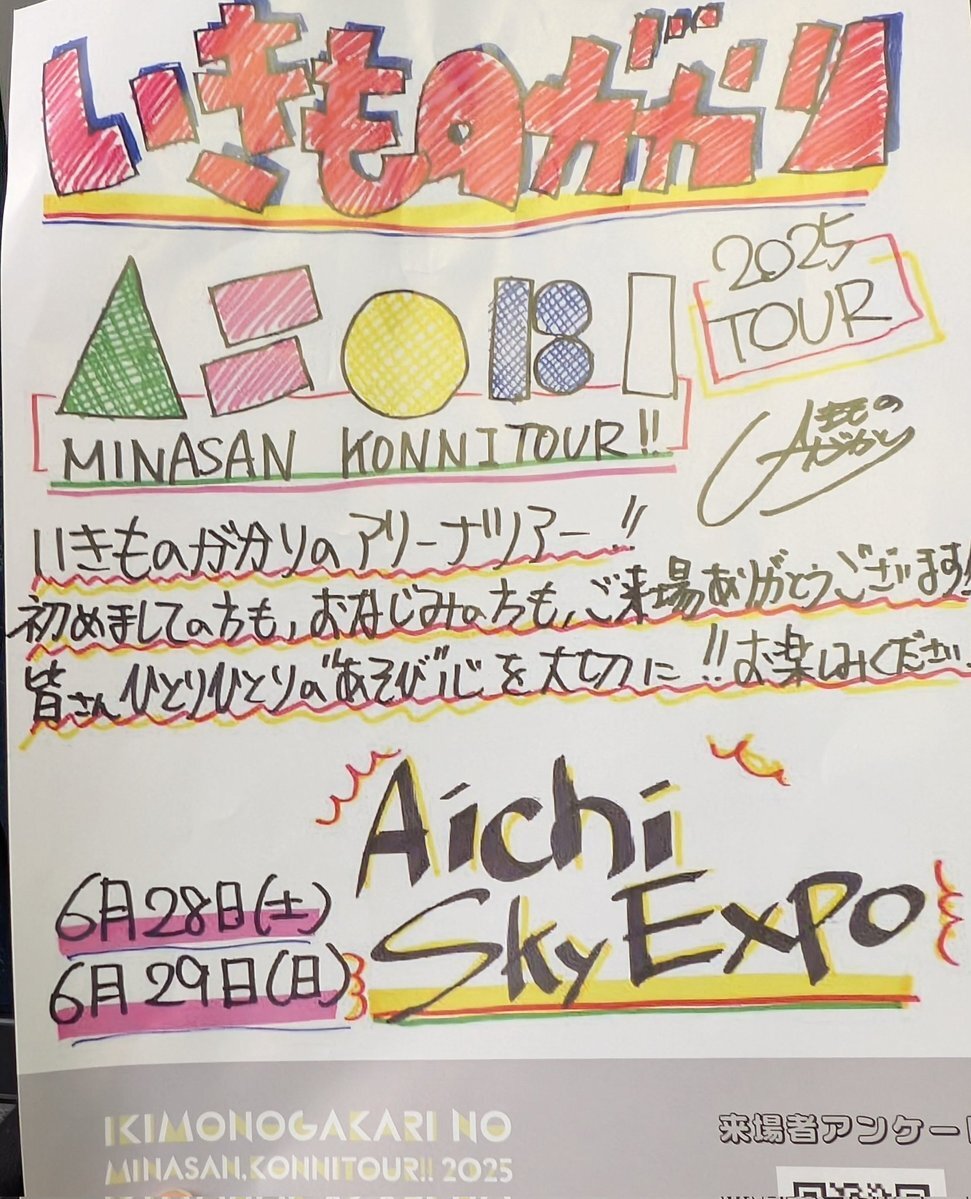 いきものがかり
ASOBI
2025
TOUR
MINASAN KONNITOUR!!
いきものがかり
いきものがかりのアリーナツアー!!
初めましての方も、おなじみの方も、ご来場ありがとうございます!!
皆さんひとりひとりの"あそび"心を大切に!!お楽しみください
Aichi
Sky Expo
6月28日(土)
6月29日(日)
IKIMONOGAKARI NO
MINASAN, KONNITOUR!! 2025
来場者アンケー